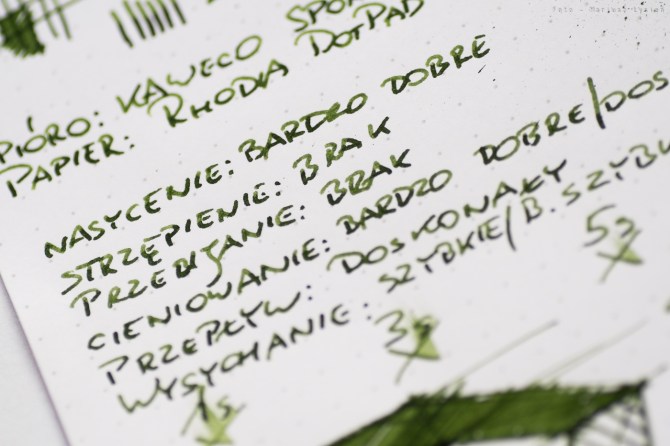 Foto - Mariusz
PIÓRO: KAWECO SPO
PAPIER: RHODIA DOTPAD
NASYCENIE: BARDZO DOBRE
STRZĘPIENIE: BRAK
PRZEBIJANIE: BRAK
CIENIOWANIE: BARDZO DOBRE/DOS
PRZEPŁYW: DOSKONAŁY
WYSYCHANIE: SZYBKIE/B. SZYBK
1s 3s 5s